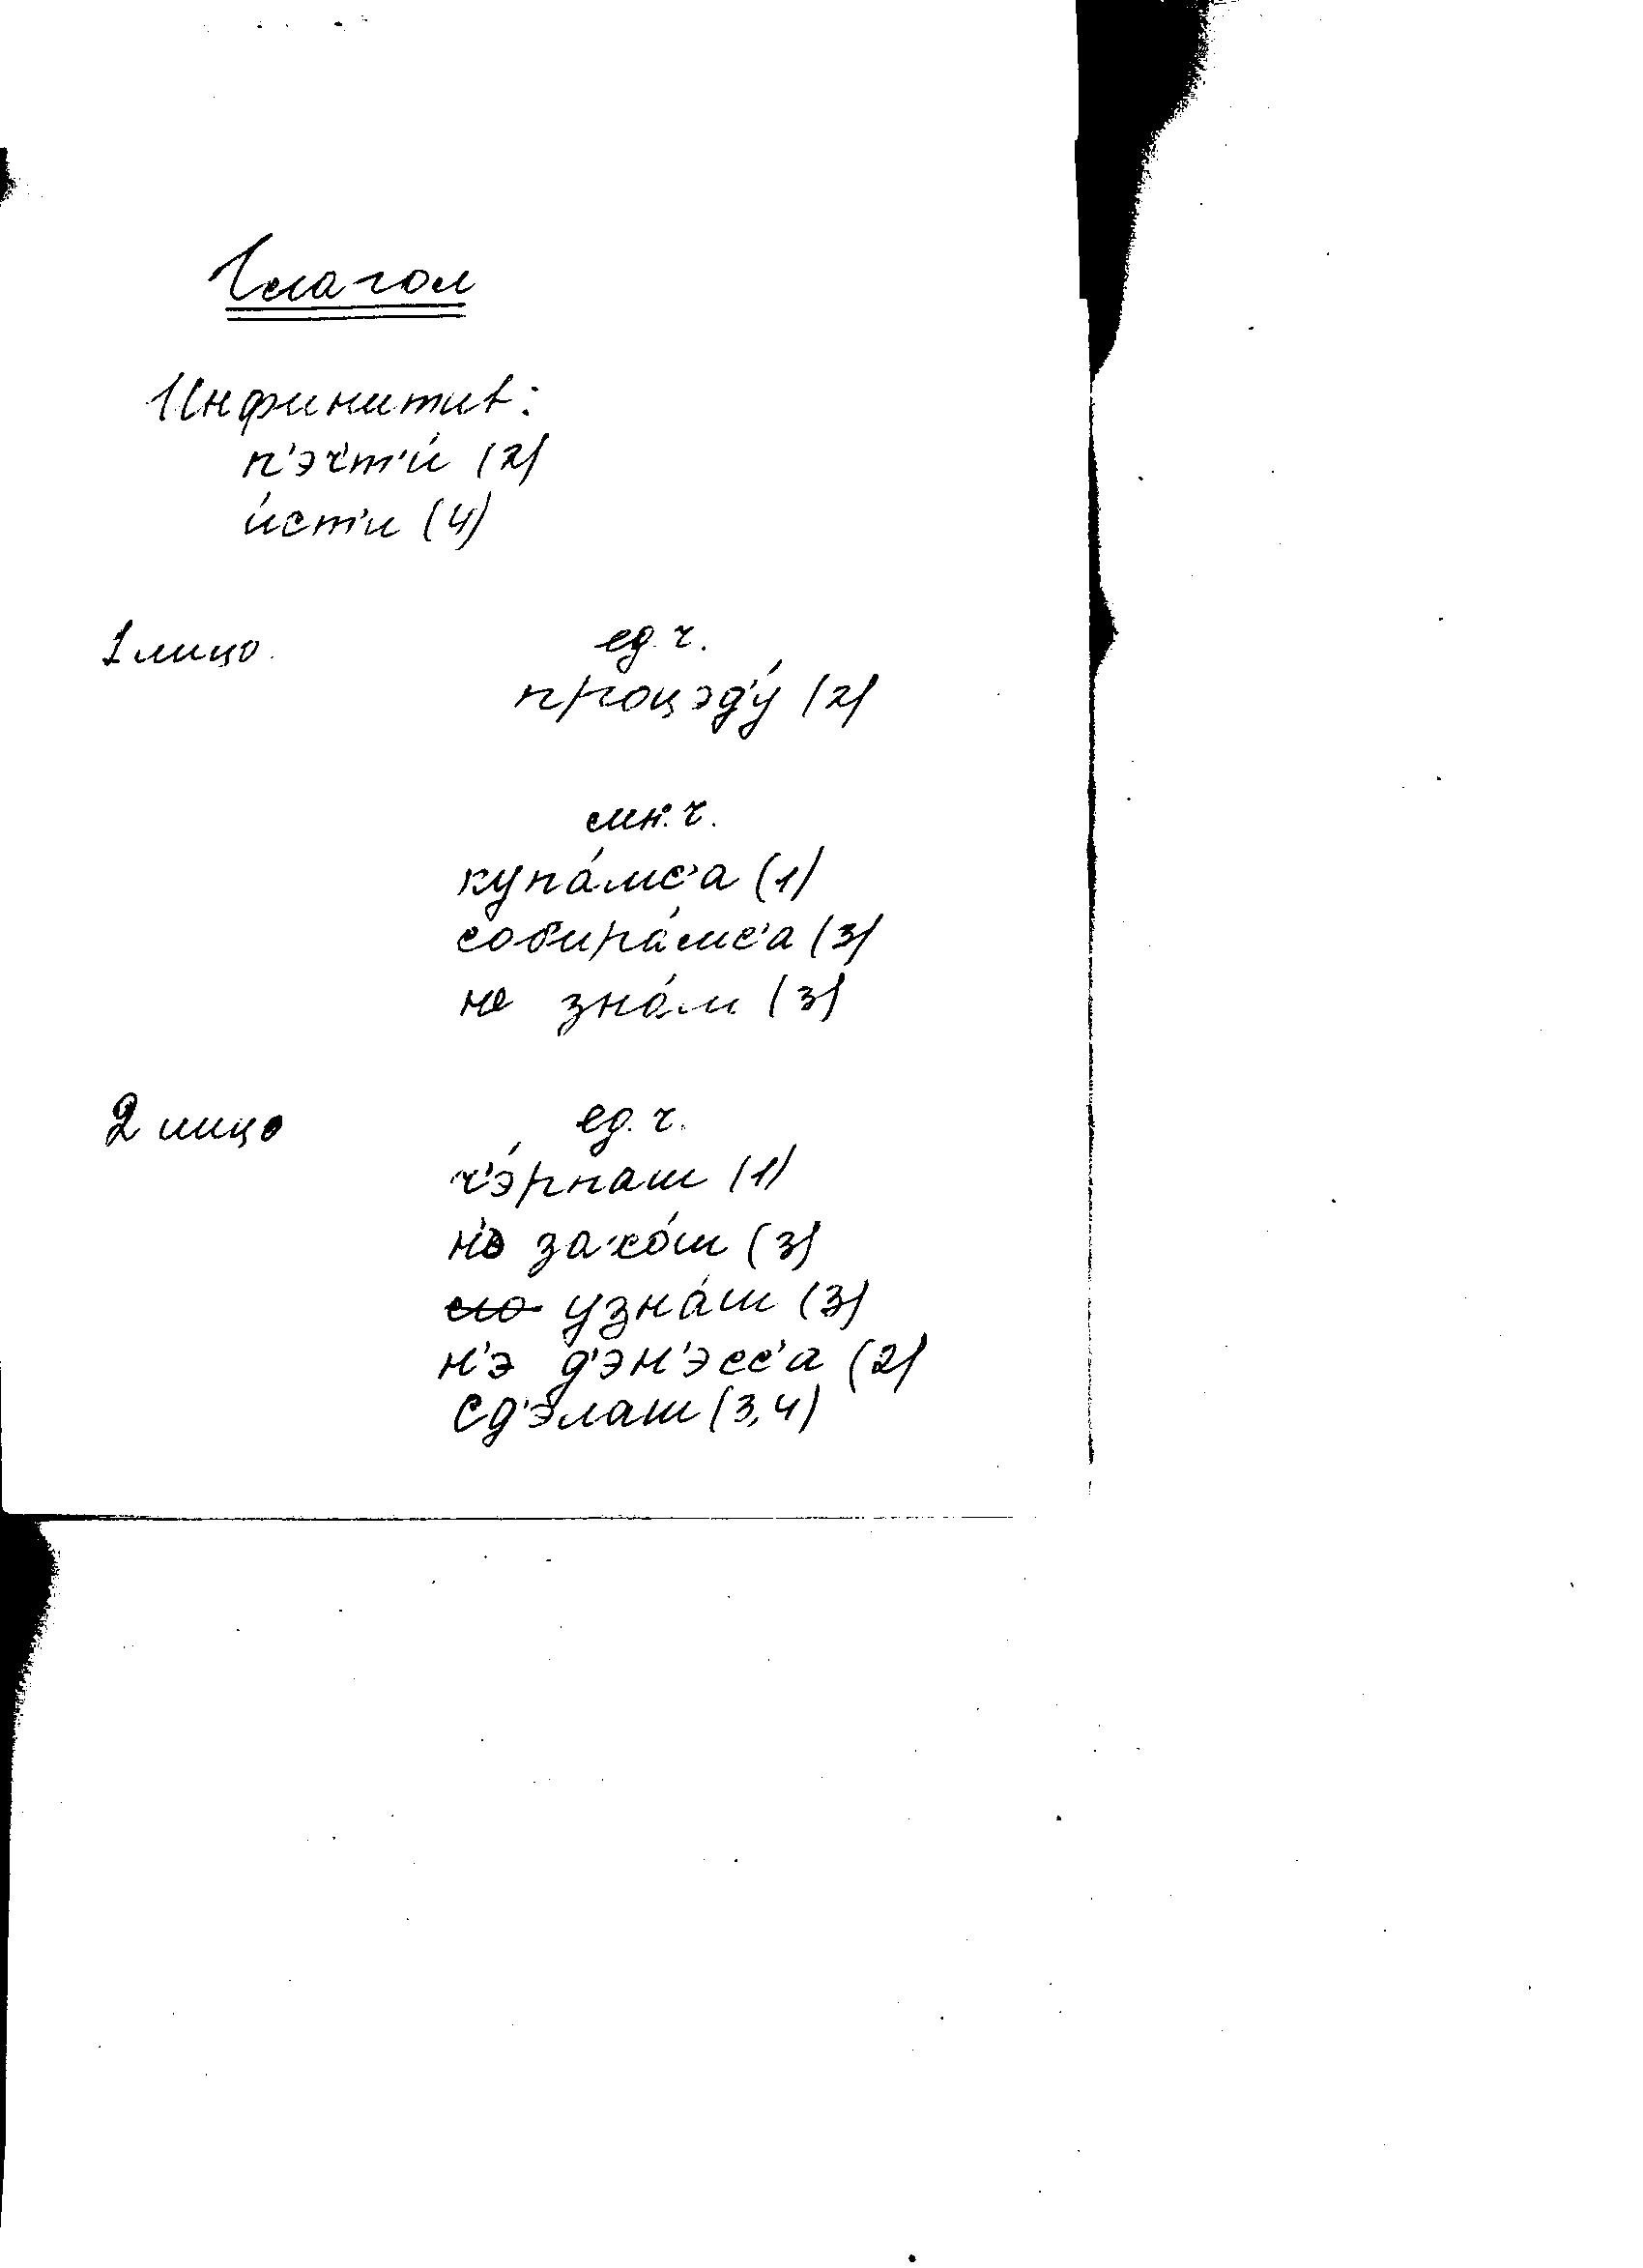 Глагол
Инфинитив:
п'эч'т'и́ (2)
и́ст'и (4)
1 лицо.
ед. ч.
процэд'у́ (2)
мн. ч.
купа́мс'а (1)
собира́мс'а (3)
не зна́м (3)
2 лицо
ед. ч.
ч'э́рпаш (1)
н'э захо́ш (3)
узна́ш (3)
н'э д'эн'эсс'а (2)
сд'элаш (3,4)